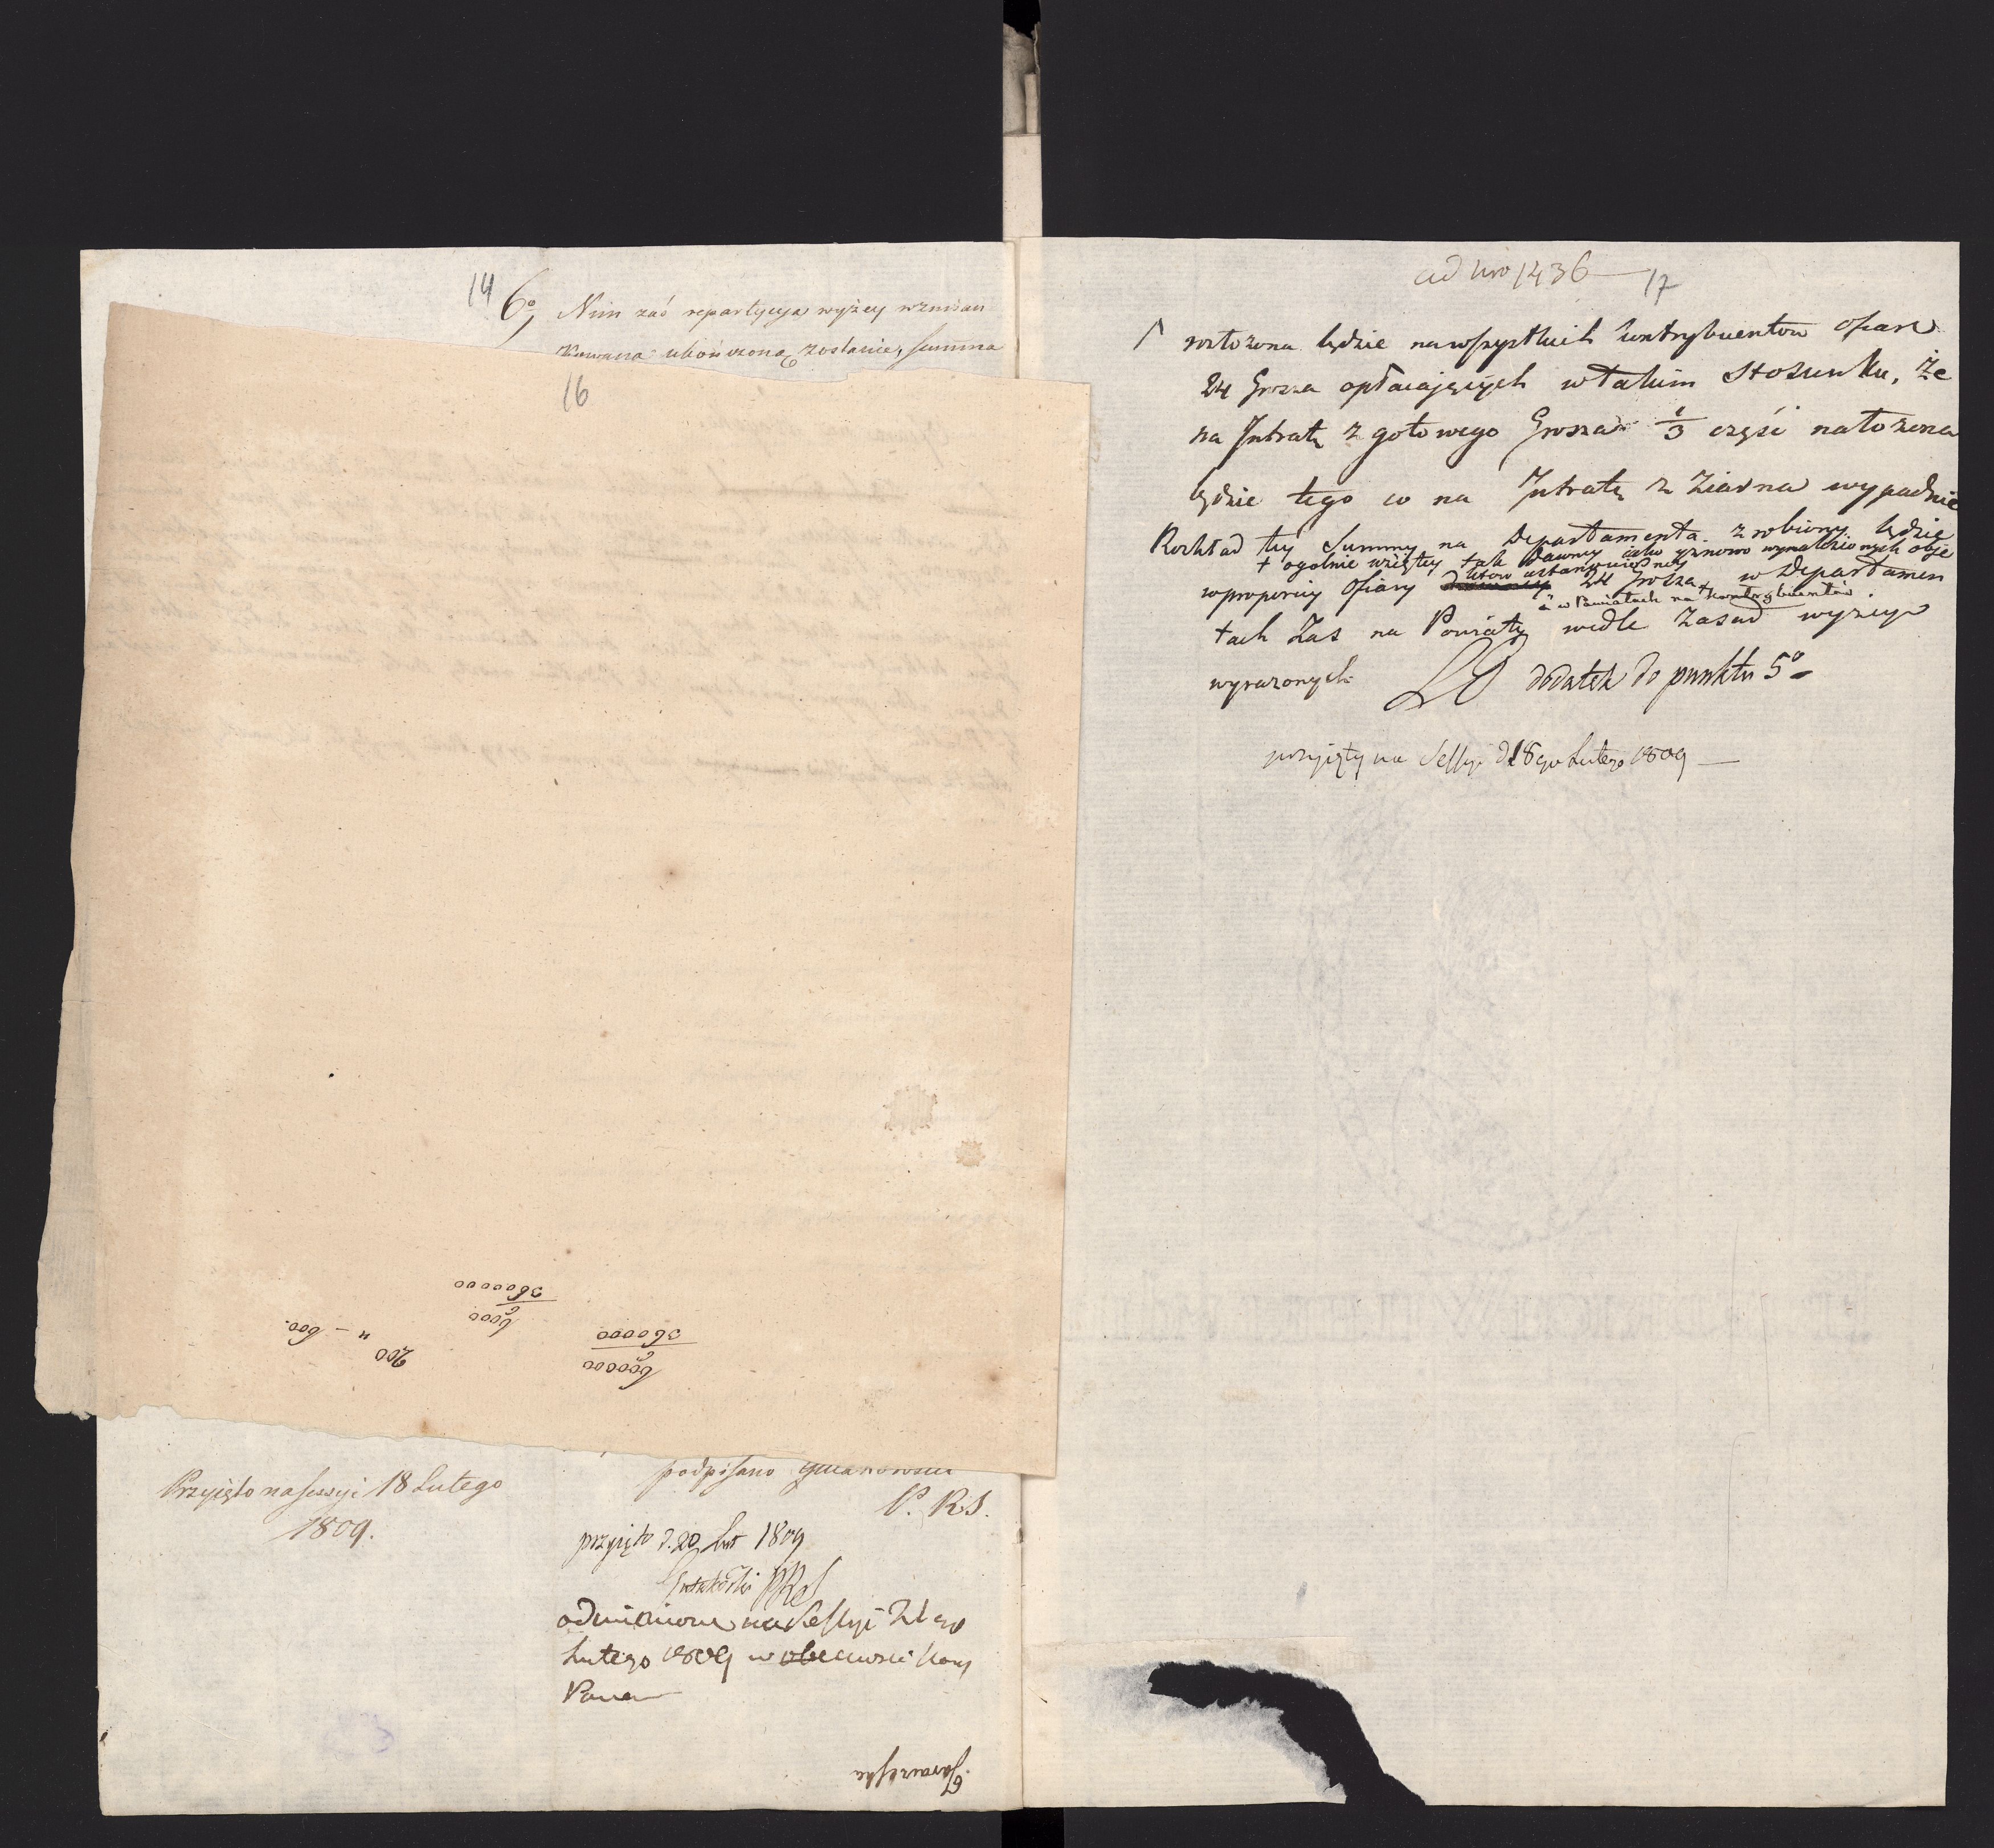 14
6o,
Nim zaś repartycya wyżey wzmian
kowana ukończona zostanie, summa
16
3600000
6000
200
" – 600.
360000
600000
podpisano Gutakowski
P. R. S.
Przyięto na sessyi 18 Lutego
1809.
przyięto d. 20 Lut 1809
Gutakowski PRS
odmienione na Sessyi 21 go
Lutego 1809 w obecności
Pana
ad nro 1436
17
rozłożona będzie na wszystkich kontrybuentow ofiarę
24 Grosza opłacaiących w takim Stosunku, że
na Intratę z gotowego Grosza 1/3 część nałożona
będzie tego co na Intratę z Ziarna wypadnie
Rozkład tey Summy na Departamenta zrobiony będzie
+ ogolnie wziętey tak dawney iako y nowo wynalezionych obie
ktow ustanowioney
w proporcyi Ofiary 24 Grosza + w Departamen
a w Powiatach na kontrybuentów
tach Zas na Powiaty wedle Zasad wyzey
wyrazonych
dodatek do punktu 5o
przyięty na Sessyi d 18 go Lutego 1809